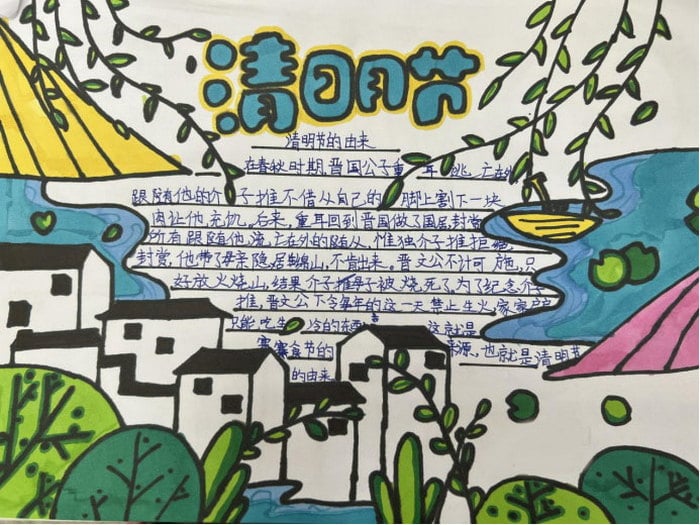 清明节
清明节的由来
在春秋时期,晋国公子重耳逃亡在外,
跟随他的介子推不惜从自己的脚上割下一块
肉让他充饥。后来,重耳回到晋国做了国君,封赏
所有跟随他流亡在外的随从,惟独介子推拒绝
封赏,他带了母亲隐居绵山,不肯出来。晋文公不计可施,只
好放火烧山,结果介子推母子被烧死了为了纪念介子
推,晋文公下令每年的这一天禁止生火,家家户
只能吃生冷的东西 这就是
寒食节的 来源,也就是清明节
的由来